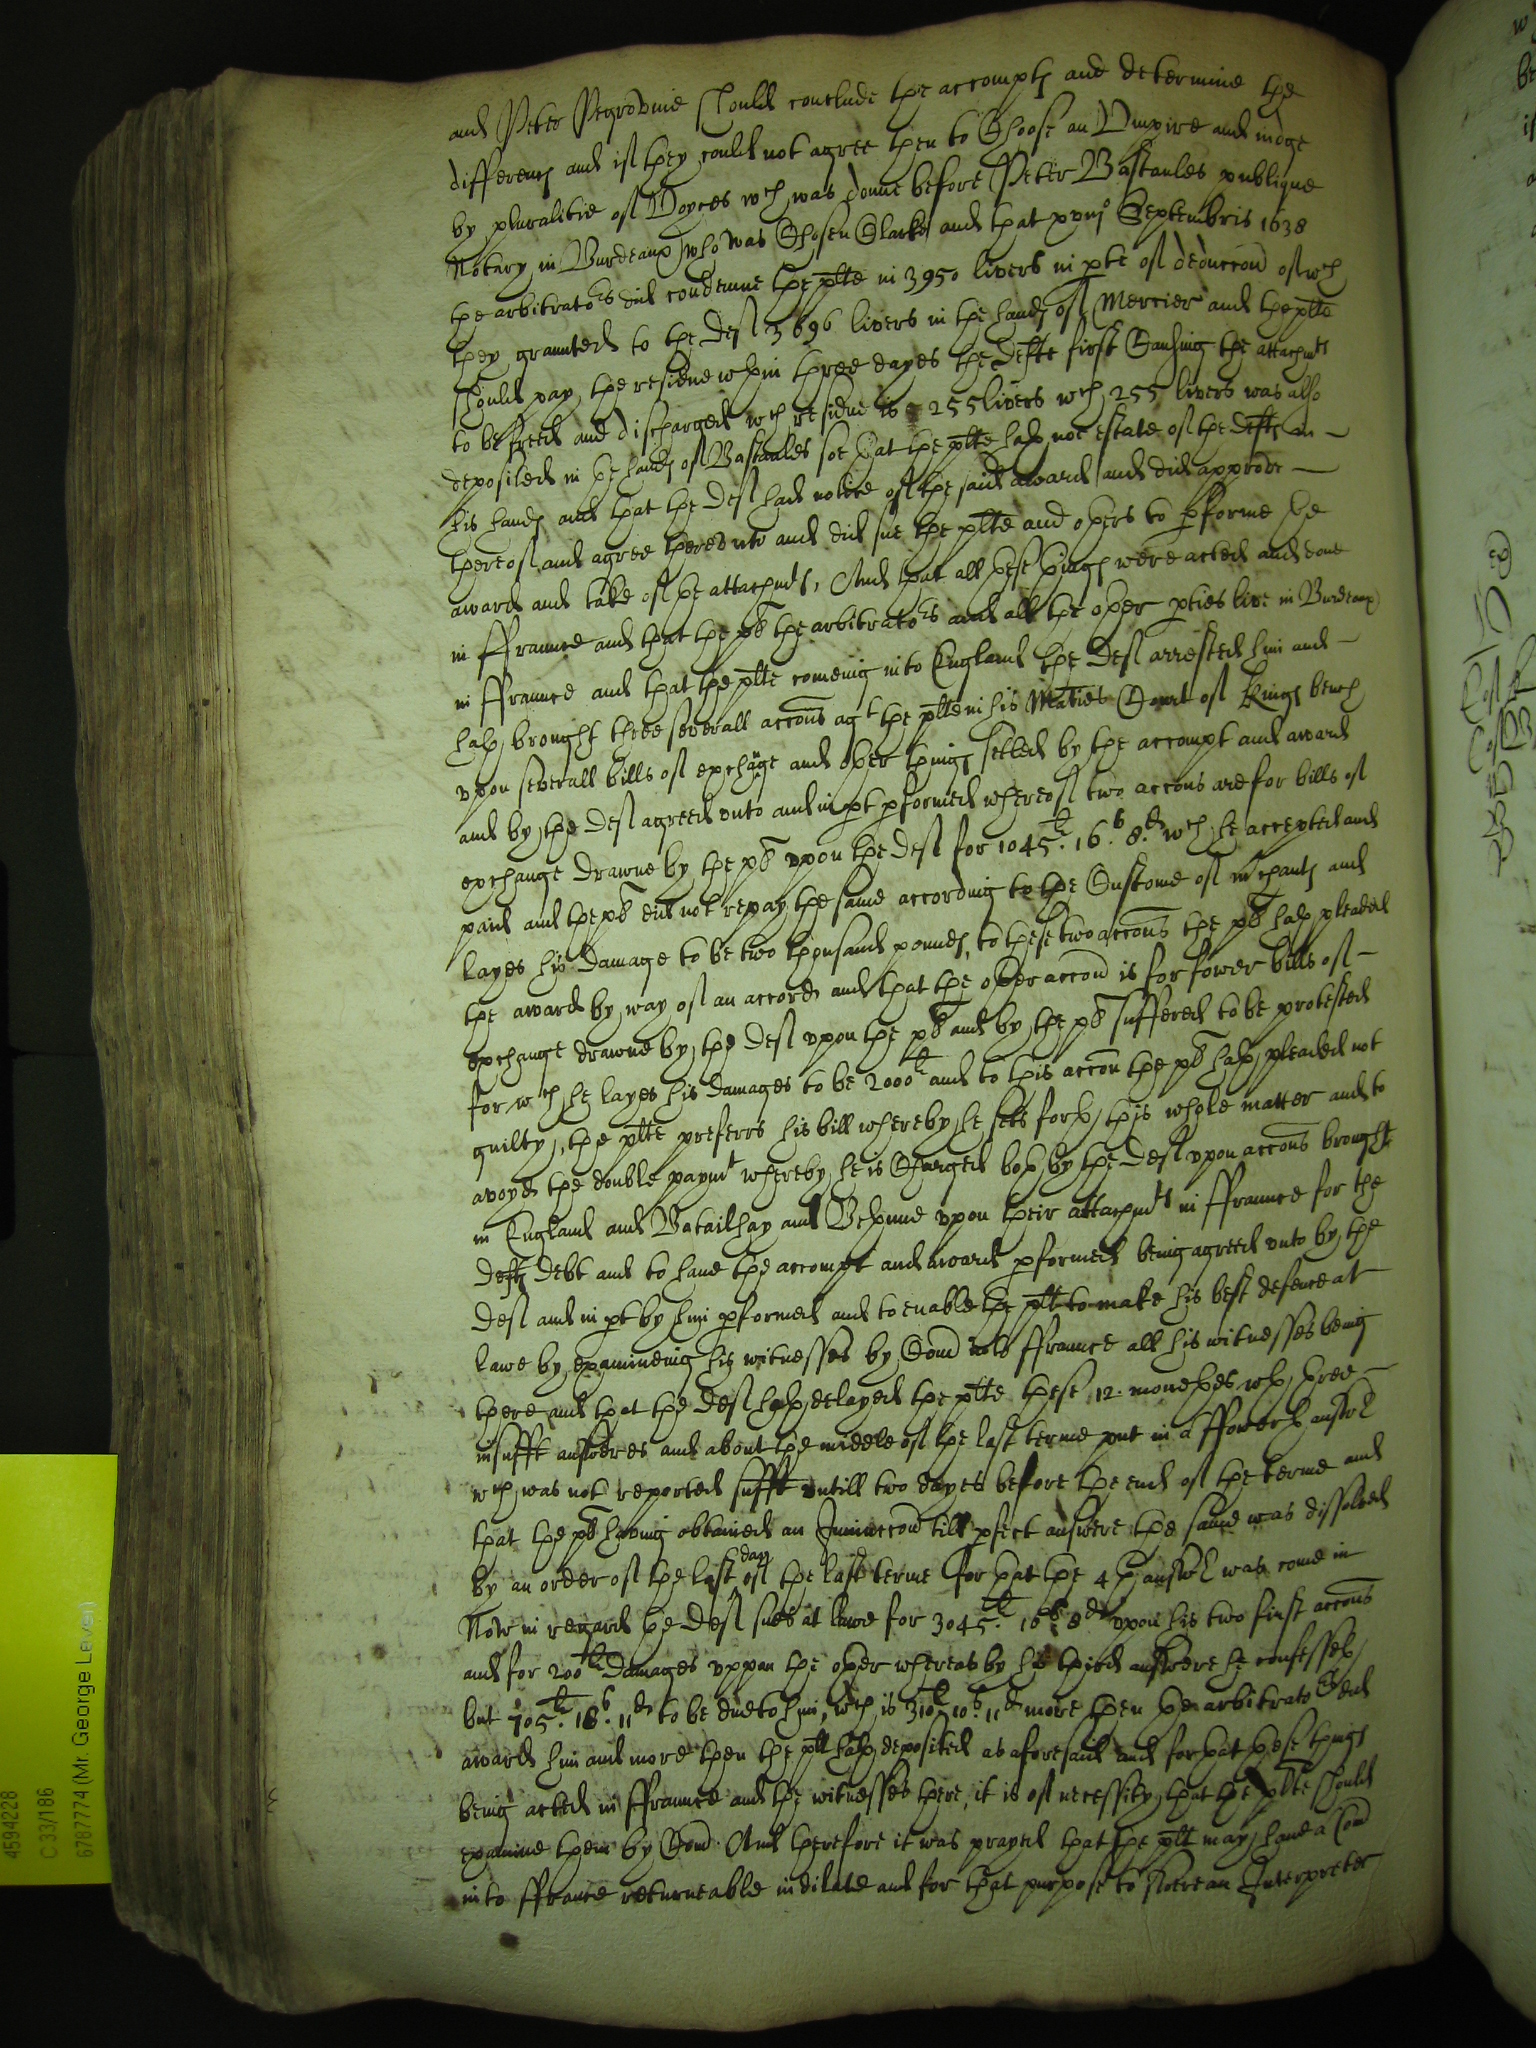 and Peter Pegrovine should conclude the accompts and determine the
differences and if they could not agree then to Choose an Vmpire and iudge
by pluralitie of Voyces wch was donne before Peter Bastaules publique
Notary in Burdeaux who was Chosen Clarke and that xviijo Septembris 1638
the arbitrators did condemne the plte in 3950 livers in pte of deduccon of wch
they graunted to the Deft 3696 livers in the hands of Mercier and the plte
should pay the residue wthin three dayes the Defte first Causing the attachmts
to be freed and discharged wch residue is 255 livers wch 255 livers was also
deposited in the hands of Bastaules soe that the plte hath noe estate of the Defts in
his hands and that the Deft had notice of the said award and did approve
thereof and agree therevnto and did sue the plte and others to pforme the
award and take of the attachmts, And that all these things were acted and done
in ffraunce and that the plt the arbitrators and all the other pties live in Burdeaux
in ffraunce and that the plte comeing into England the Deft arrested him and
hath brought three severall accons agt the plte in his Maties Court of Kings bench
vpon severall bills of exchange and other things setled by the accompt and award
and by the Deft agreed vnto and in pt pformed whereof two accons are for bills of
exchange drawne by the plt vpon the Deft for 1045li. 16s. 8d. wch he accepted and
paid and the plt did not repay the same according to the Custome of mchants and
layes his damage to be two thousand pounds, to these two accons the plt hath pleaded
the award by way of an accord and that the other accon is for fower bills of
exchange drawne by the Deft vpon the plt and by the plt suffered to be protested
for wch he layes his damages to be 2000li and to this accon the plt hath pleaded not
guilty, the plte preferrs his bill whereby he setts forth this whole matter and to
avoyd the double paymt whereby he is Charged both by the Deft vpon accons brought
in England and Batailhay and Bethune vpon their attachmts in ffraunce for the
Defts debt and to have the accompt and award pformed being agreed vnto by the
Deft and in pt by him pformed and to enable the plt to make his best defence at
lawe by examineing his witnesses by Comd into ffraunce all his witnesses being
there and that the Deft hath delayed the plte these 12. monethes wth three
insufft answeres and about the middle of the last terme put in a ffowerth answr
wch was not reported sufft untill two dayes before the end of the terme and
that the plt having obtained an Iniunccon till pfect answere the same was dissolved
by an order of the last day of the last terme for that the 4th answr was come in
Now in regard the Deft sues at lawe for 3045li. 16s 8d vpon his two first accons
and for 200li Damages vppon the other whereas by his third answere he confesseth
but 705li. 18s. 11d to be due to him, wch is 310li 10s. 11d more then the arbitrators did
award him and more then the plt hath deposited as aforesaid and for that these things
being acted in ffraunce and the witnesses there, it is of necessity that the plte should
examine them by Comd. And therefore it was prayed that the plt may have a Com
into ffrance returneable indilate and for that purpose to sweare an Interpreter
4594228
C 33/186
6787774 (Mr. George Leven)